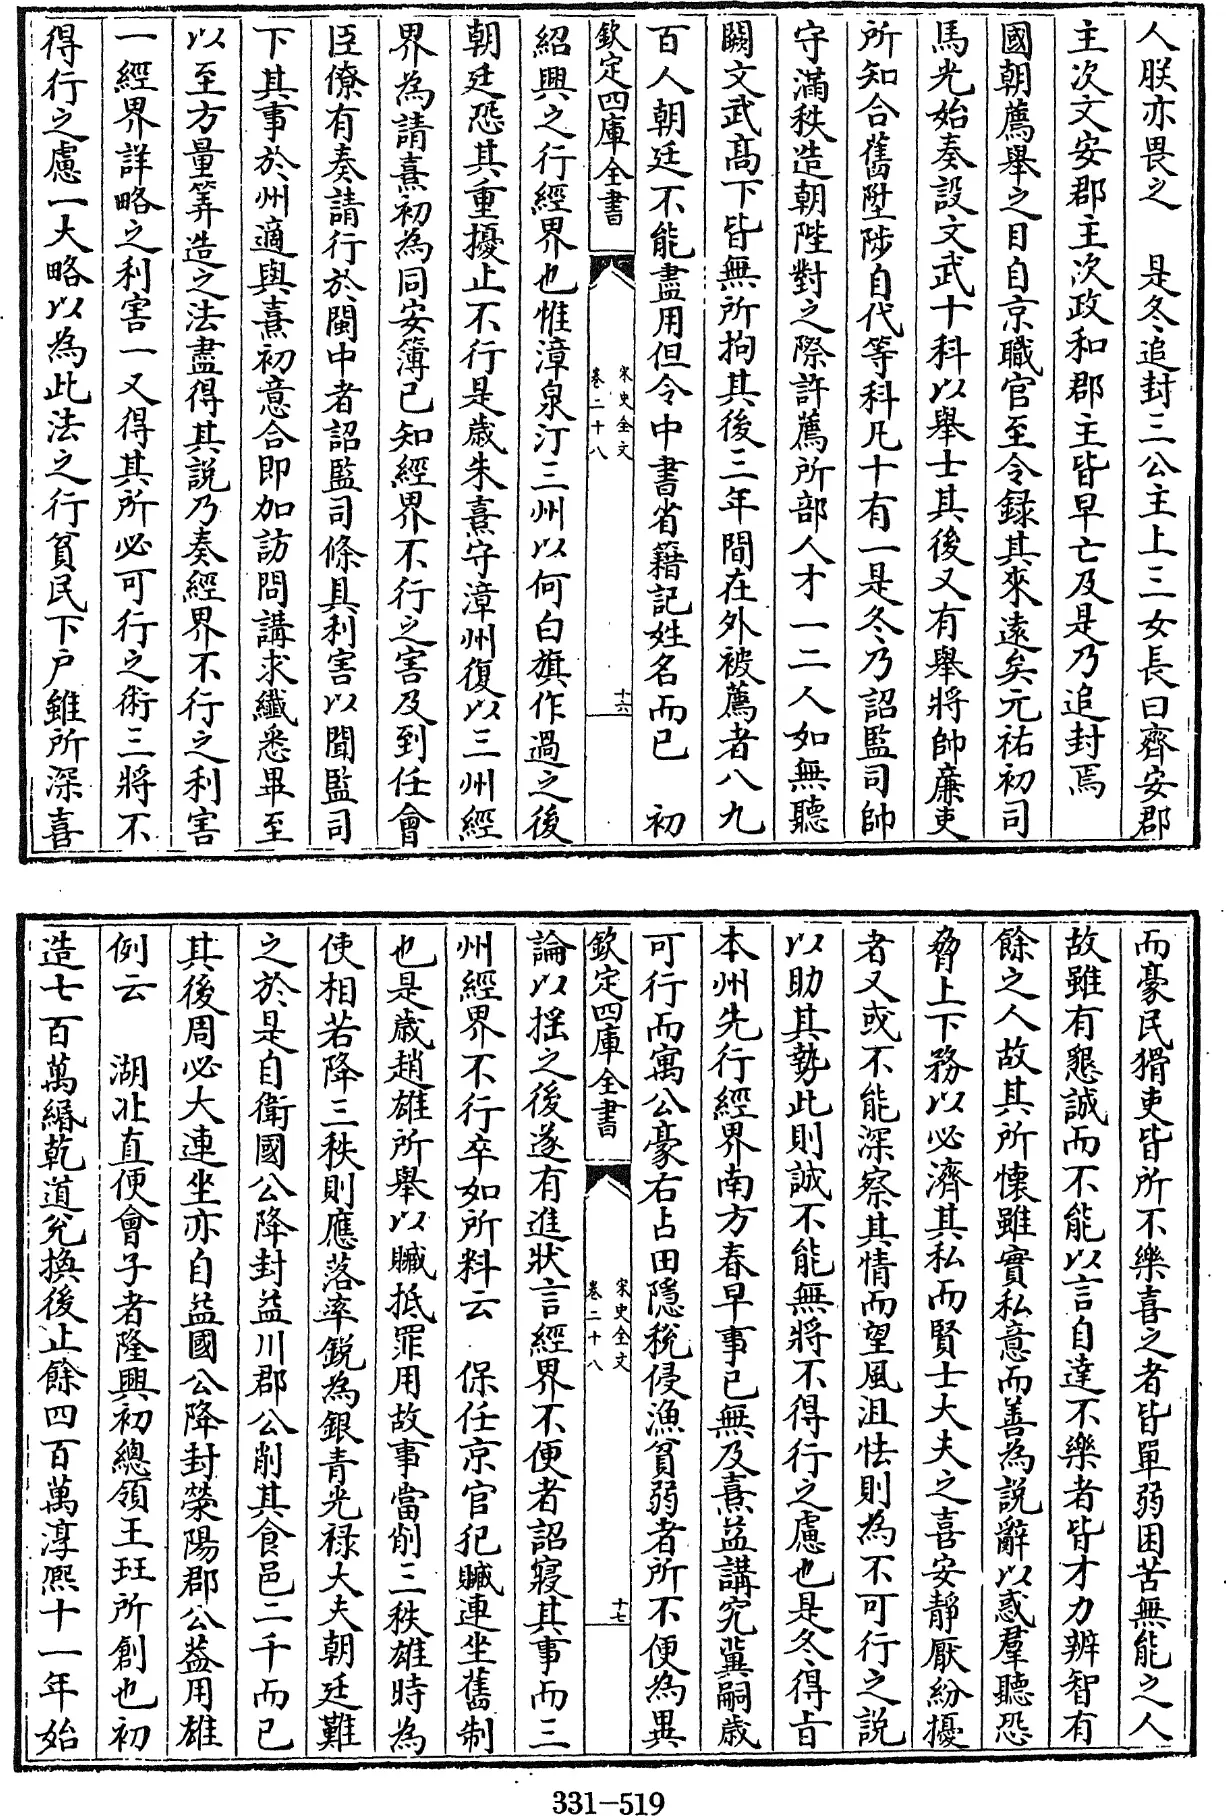 人朕亦畏之　是冬追封三公主上三女長曰齊安郡
主次文安郡主次政和郡主皆早亡及是乃追封焉
國朝薦舉之目自京職官至令録其來遠矣元祐初司
馬光始奏設文武十科以舉士其後又有舉將帥廉吏
所知合舊陞陟自代等科凡十有一是冬乃詔監司帥
守滿秩造朝陛對之際許薦所部人才一二人如無聽
闕文武髙下皆無所拘其後三年間在外被薦者八九
百人朝廷不能盡用但令中書省籍記姓名而已　初
欽定四庫全書
宋史全文
卷二十八
十六
紹興之行經界也惟漳泉汀三州以何白旗作過之後
朝廷恐其重擾止不行是歲朱熹守漳州復以三州經
界為請熹初為同安簿已知經界不行之害及到任會
臣僚有奏請行於閩中者詔監司條具利害以聞監司
下其事於州適與熹初意合即加訪問講求纎悉畢至
以至方量筭造之法盡得其説乃奏經界不行之利害
一經界詳略之利害一又得其所必可行之術三將不
得行之慮一大略以為此法之行貧民下户雖所深喜
而豪民猾吏皆所不樂喜之者皆單弱困苦無能之人
故雖有懇誠而不能以言自達不樂者皆才力辨智有
餘之人故其所懷雖實私意而善為説辭以惑羣聽恐
脅上下務以必濟其私而賢士大夫之喜安靜厭紛擾
者又或不能深察其情而望風沮怯則為不可行之説
以助其勢此則誠不能無將不得行之慮也是冬得㫖
本州先行經界南方春早事已無及熹益講究冀嗣歲
可行而寓公豪右占田隱税侵漁貧弱者所不便為異
欽定四庫全書
宋史全文
卷二十八
十七
論以揺之後遂有進狀言經界不便者詔寢其事而三
州經界不行卒如所料云　保任京官犯贓連坐舊制
也是歲趙雄所舉以贓抵罪用故事當削三秩雄時為
使相若降三秩則應落率鋭為銀青光禄大夫朝廷難
之於是自衛國公降封益川郡公削其食邑二千而已
其後周必大連坐亦自益國公降封滎陽郡公葢用雄
例云　湖北直便會子者隆興初總領王珏所創也初
造七百萬緡乾道兊換後止餘四百萬淳熙十一年始
331-519